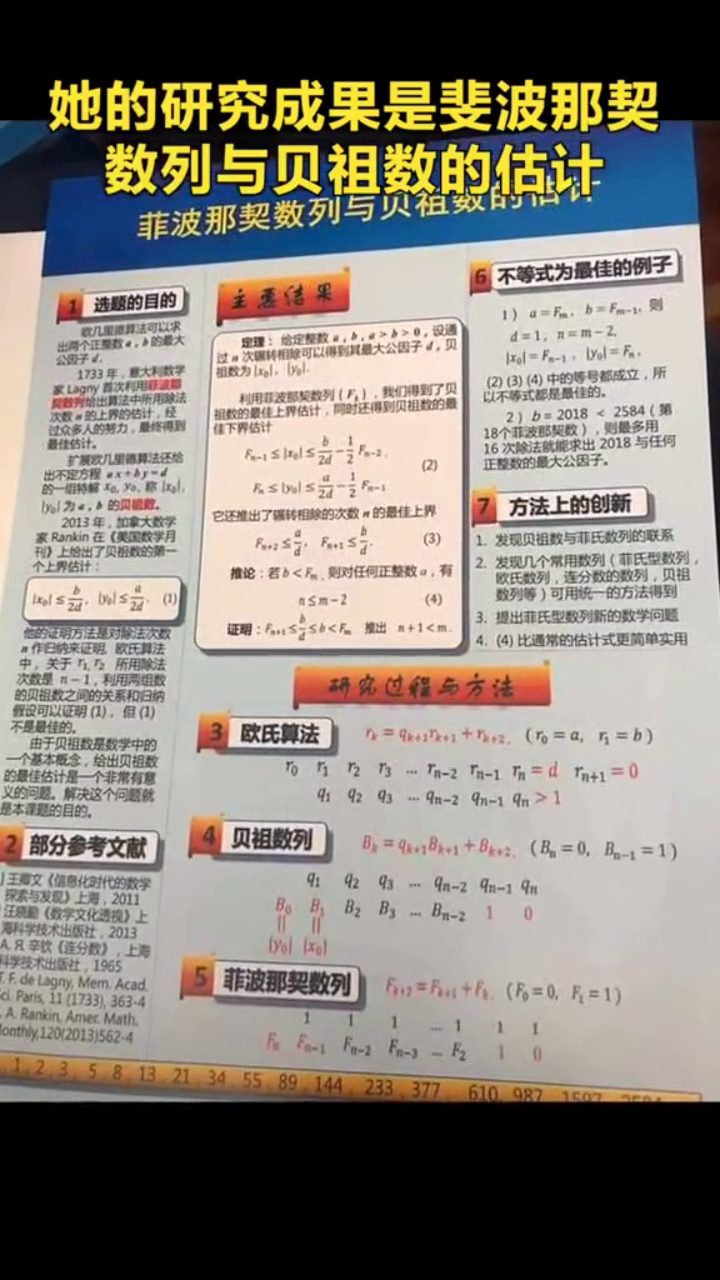 她的研究成果是斐波那契
数列与贝祖数的估计
菲波那契数列与贝祖数的估计
1 选题的目的
欧几里德算法可以求
出两个正整数 a, b 的最大
公因子 d.
1733 年，意大利数学
家 Lagny 首次利用菲波那
契数列给出算法中所用除法
次数 n 的上界的估计，经
过众多人的努力，最终得到
最佳估计。
扩展欧几里德算法还给
出不定方程 ax+by=d
的一组特解 x₀, y₀, 称 |x₀|,
|y₀| 为 a, b 的贝祖数。
2013 年，加拿大数学
家 Rankin 在《美国数学月
刊》上给出了贝祖数的第一
个上界估计：
|x₀| ≤ b/2d, |y₀| ≤ a/2d. (1)
他的证明方法是对除法次数
n 作归纳来证明. 欧氏算法
中，关于 r₁, r₂ 所用除法
次数是 n−1，利用两组数
的贝祖数之间的关系和归纳
假设可以证明 (1)，但 (1)
不是最佳的。
由于贝祖数是数学中的
一个基本概念，给出贝祖数
的最佳估计是一个非常有意
义的问题。解决这个问题就
是本课题的目的。
2 部分参考文献
] 王雁文《信息化时代的数学
探索与发现》上海，2011
汪晓勤《数学文化透视》上
海科学技术出版社，2013
A. Я. 辛钦《连分数》，上海
科学技术出版社，1965
T. F. de Lagny, Mem. Acad.
Sci. Paris, 11 (1733), 363-4
. A. Rankin, Amer. Math.
Monthly,120(2013)562-4
主要结果
定理：给定整数 a, b, a > b > 0, 设通
过 n 次辗转相除可以得到其最大公因子 d, 贝
祖数为 |x₀|, |y₀|.
利用菲波那契数列 (Fₖ)，我们得到了贝
祖数的最佳上界估计，同时还得到贝祖数的最
佳下界估计
Fₙ₋₁ ≤ |x₀| ≤ b/2d − 1/2 Fₙ₋₂,
(2)
Fₙ ≤ |y₀| ≤ a/2d − 1/2 Fₙ₋₁
它还推出了辗转相除的次数 n 的最佳上界
Fₙ₊₂ ≤ a/d, Fₙ₊₁ ≤ b/d. (3)
推论：若 b < Fₘ, 则对任何正整数 a，有
n ≤ m − 2 (4)
证明：Fₙ₊₁ ≤ b/d ≤ b < Fₘ 推出 n+1 < m.
6 不等式为最佳的例子
1) a = Fₘ, b = Fₘ₋₁, 则
d = 1, n = m − 2,
|x₀| = Fₙ₋₁, |y₀| = Fₙ,
(2) (3) (4) 中的等号都成立，所
以不等式都是最佳的。
2) b = 2018 < 2584 (第
18个菲波那契数)，则最多用
16 次除法就能求出 2018 与任何
正整数的最大公因子。
7 方法上的创新
1. 发现贝祖数与菲氏数列的联系
2. 发现几个常用数列（菲氏型数列，
欧氏数列，连分数的数列，贝祖
数列等）可用统一的方法得到
3. 提出菲氏型数列新的数学问题
4. (4) 比通常的估计式更简单实用
研究过程与方法
3 欧氏算法 rₖ = qₖ₊₁rₖ₊₁ + rₖ₊₂, (r₀ = a, r₁ = b)
r₀ r₁ r₂ r₃ ... rₙ₋₂ rₙ₋₁ rₙ = d rₙ₊₁ = 0
q₁ q₂ q₃ ... qₙ₋₂ qₙ₋₁ qₙ > 1
4 贝祖数列 Bₖ = qₖ₊₁Bₖ₊₁ + Bₖ₊₂, (Bₙ = 0, Bₙ₋₁ = 1)
q₁ q₂ q₃ ... qₙ₋₂ qₙ₋₁ qₙ
B₀ B₁ B₂ B₃ ... Bₙ₋₂ 1 0
|| ||
|y₀| |x₀|
5 菲波那契数列 Fₖ₊₂ = Fₖ₊₁ + Fₖ, (F₀ = 0, F₁ = 1)
1 1 1 ... 1 1 1
Fₙ Fₙ₋₁ Fₙ₋₂ Fₙ₋₃ ... F₂ 1 0
, 1, 2, 3, 5, 8, 13, 21, 34, 55, 89, 144, 233, 377, 610, 987, 1597, 2584